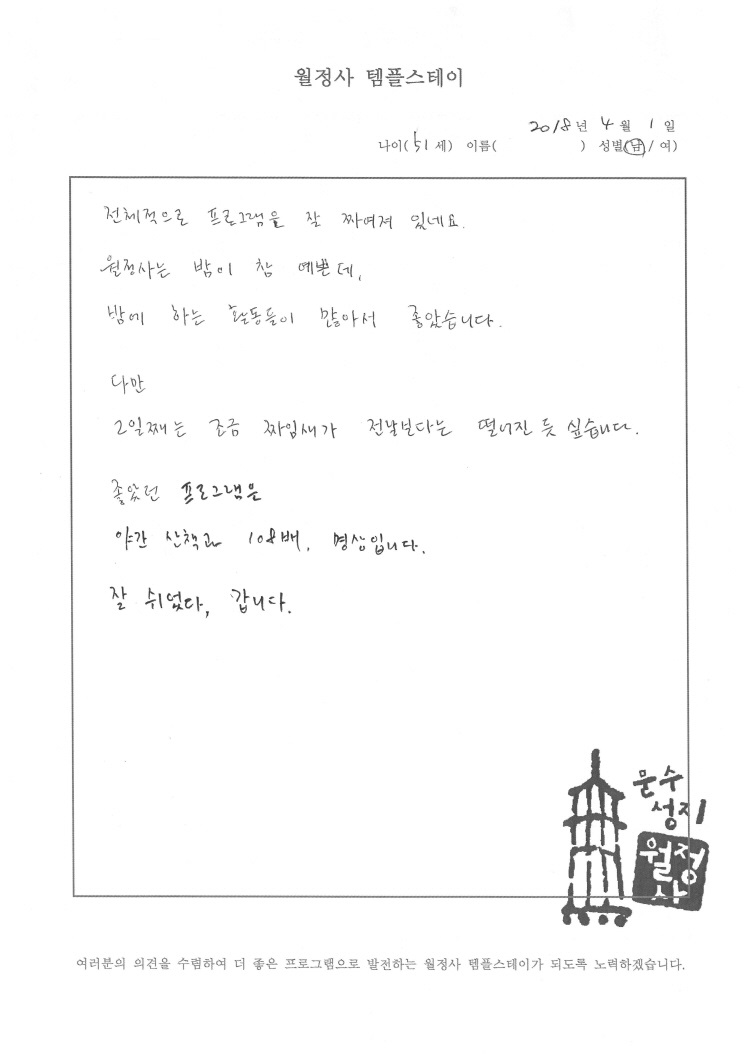 월정사 템플스테이
2018년 4월 1일
나이(51세) 이름( ) 성별(남/여)
전체적으로 프로그램을 잘 짜여져 있네요.
월정사는 밤이 참 예쁜데,
밤에 하는 활동들이 많아서 좋았습니다.
다만
2일째는 조금 짜임새가 전날보다는 떨어진 듯 싶습니다.
좋았던 프로그램은
야간 산책과 108배, 명상입니다.
잘 쉬었다, 갑니다.
문수
성지
월정
사
여러분의 의견을 수렴하여 더 좋은 프로그램으로 발전하는 월정사 템플스테이가 되도록 노력하겠습니다.